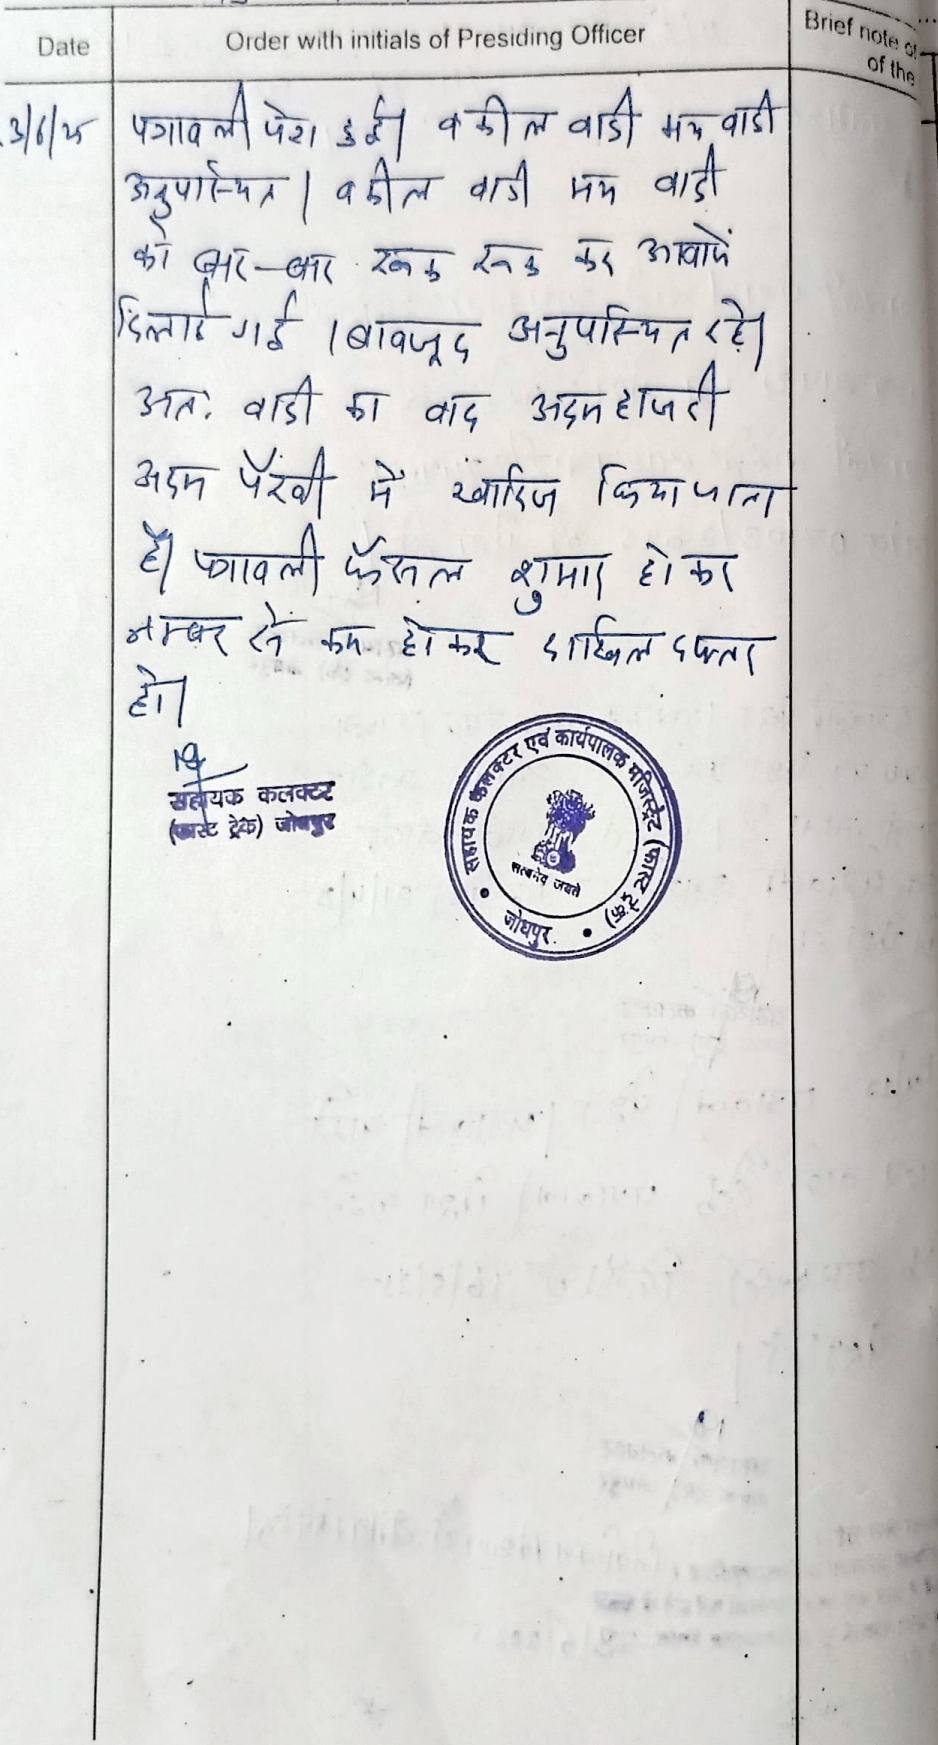 Date
Order with initials of Presiding Officer
Brief note of
of the
पत्रावली पेश हुई। वकील वादी मय वादी
अनुपस्थित। वकील वादी मय वादी
को बार-बार रूक रूक कर आवाजें
दिलाई गई। बावजूद अनुपस्थित रहे।
अतः वादी का वाद अदम हाजरी
अदम पैरवी में खारिज किया जाता
है। पत्रावली फैसल शुमार होकर
नम्बर से कम होकर दाखिल दफ्तर
हो।
सहायक कलक्टर
(फास्ट ट्रेक) जोधपुर
सहायक कलक्टर एवं कार्यपालक मजिस्ट्रेट (फास्ट ट्रेक)
सत्यमेव जयते
जोधपुर